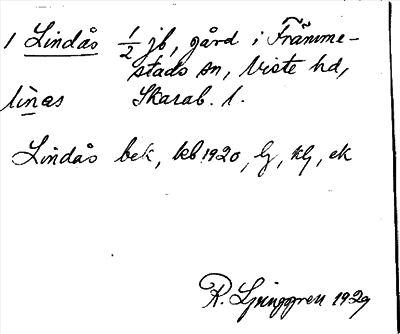 1 Lindås 1/2 jb, gård i Främme-
stads sn, Viste hd,
lìnas Skarab. l.
Lindås bek, kb 1920, lj, klj, ek
R. Ljunggren 1929